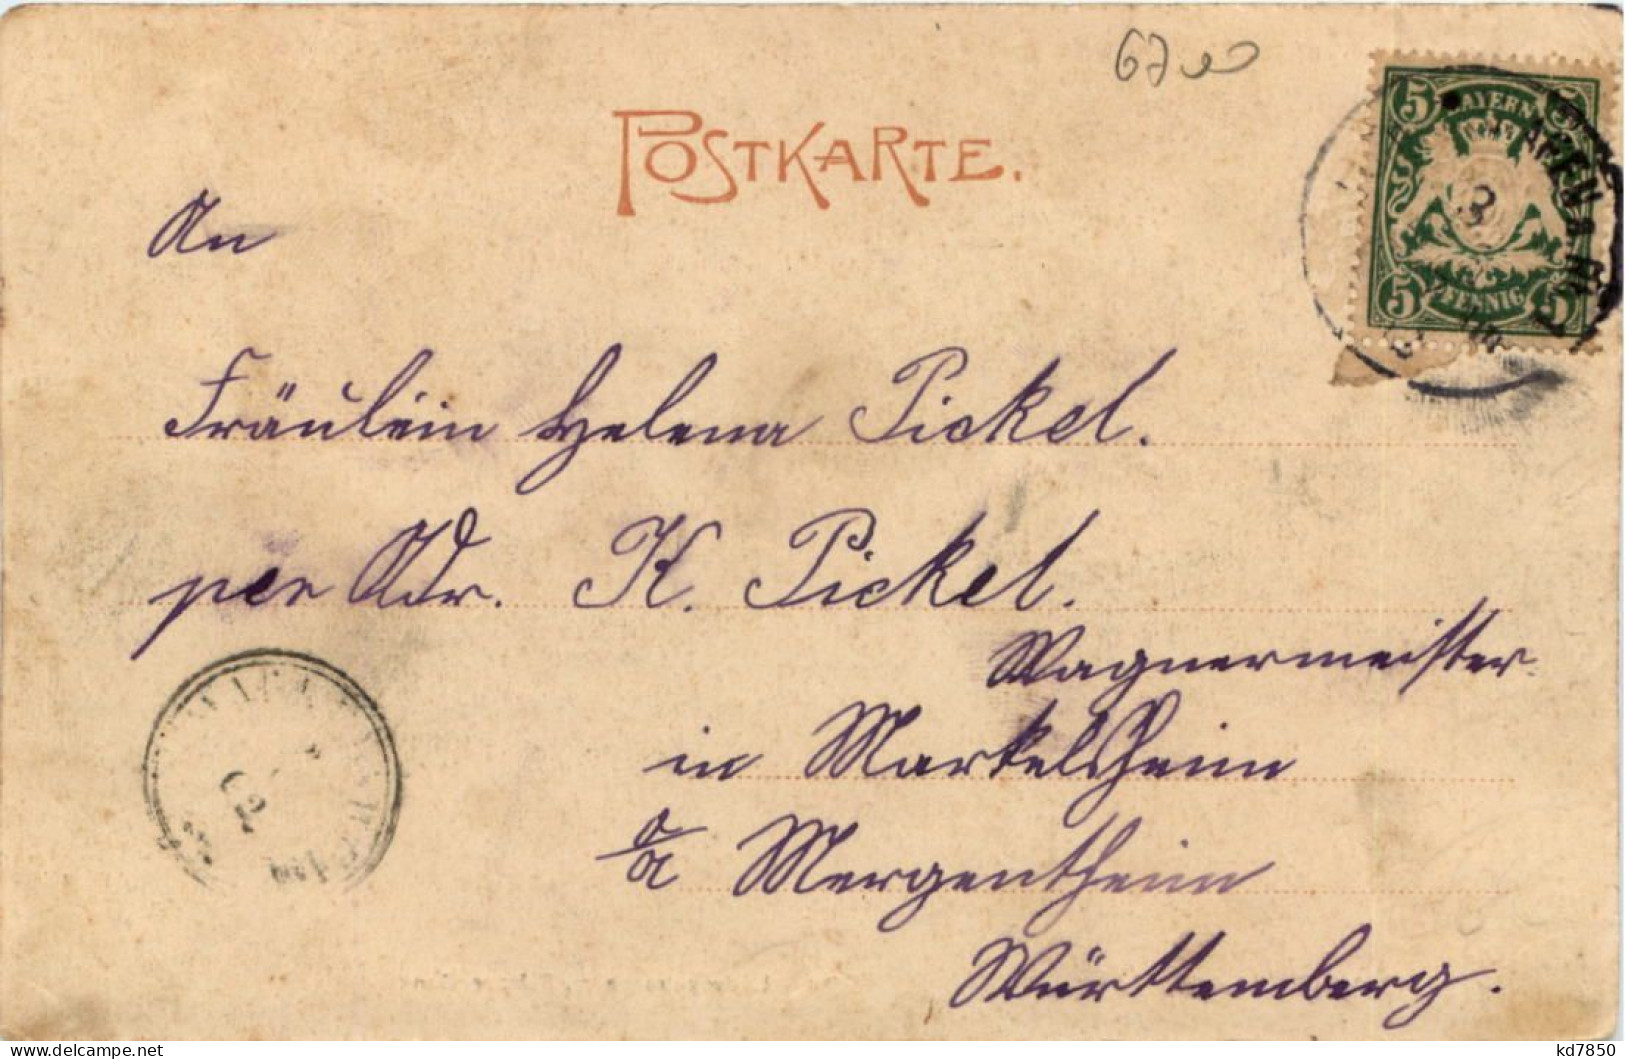 POSTKARTE.
5 BAYERN 5
5 PFENNIG 5
3
An
Fräulein Helena Pickel.
per Adr. K. Pickel.
Wagnermeister
in Markelsheim
a/a Mergentheim
Württemberg.
kd7850